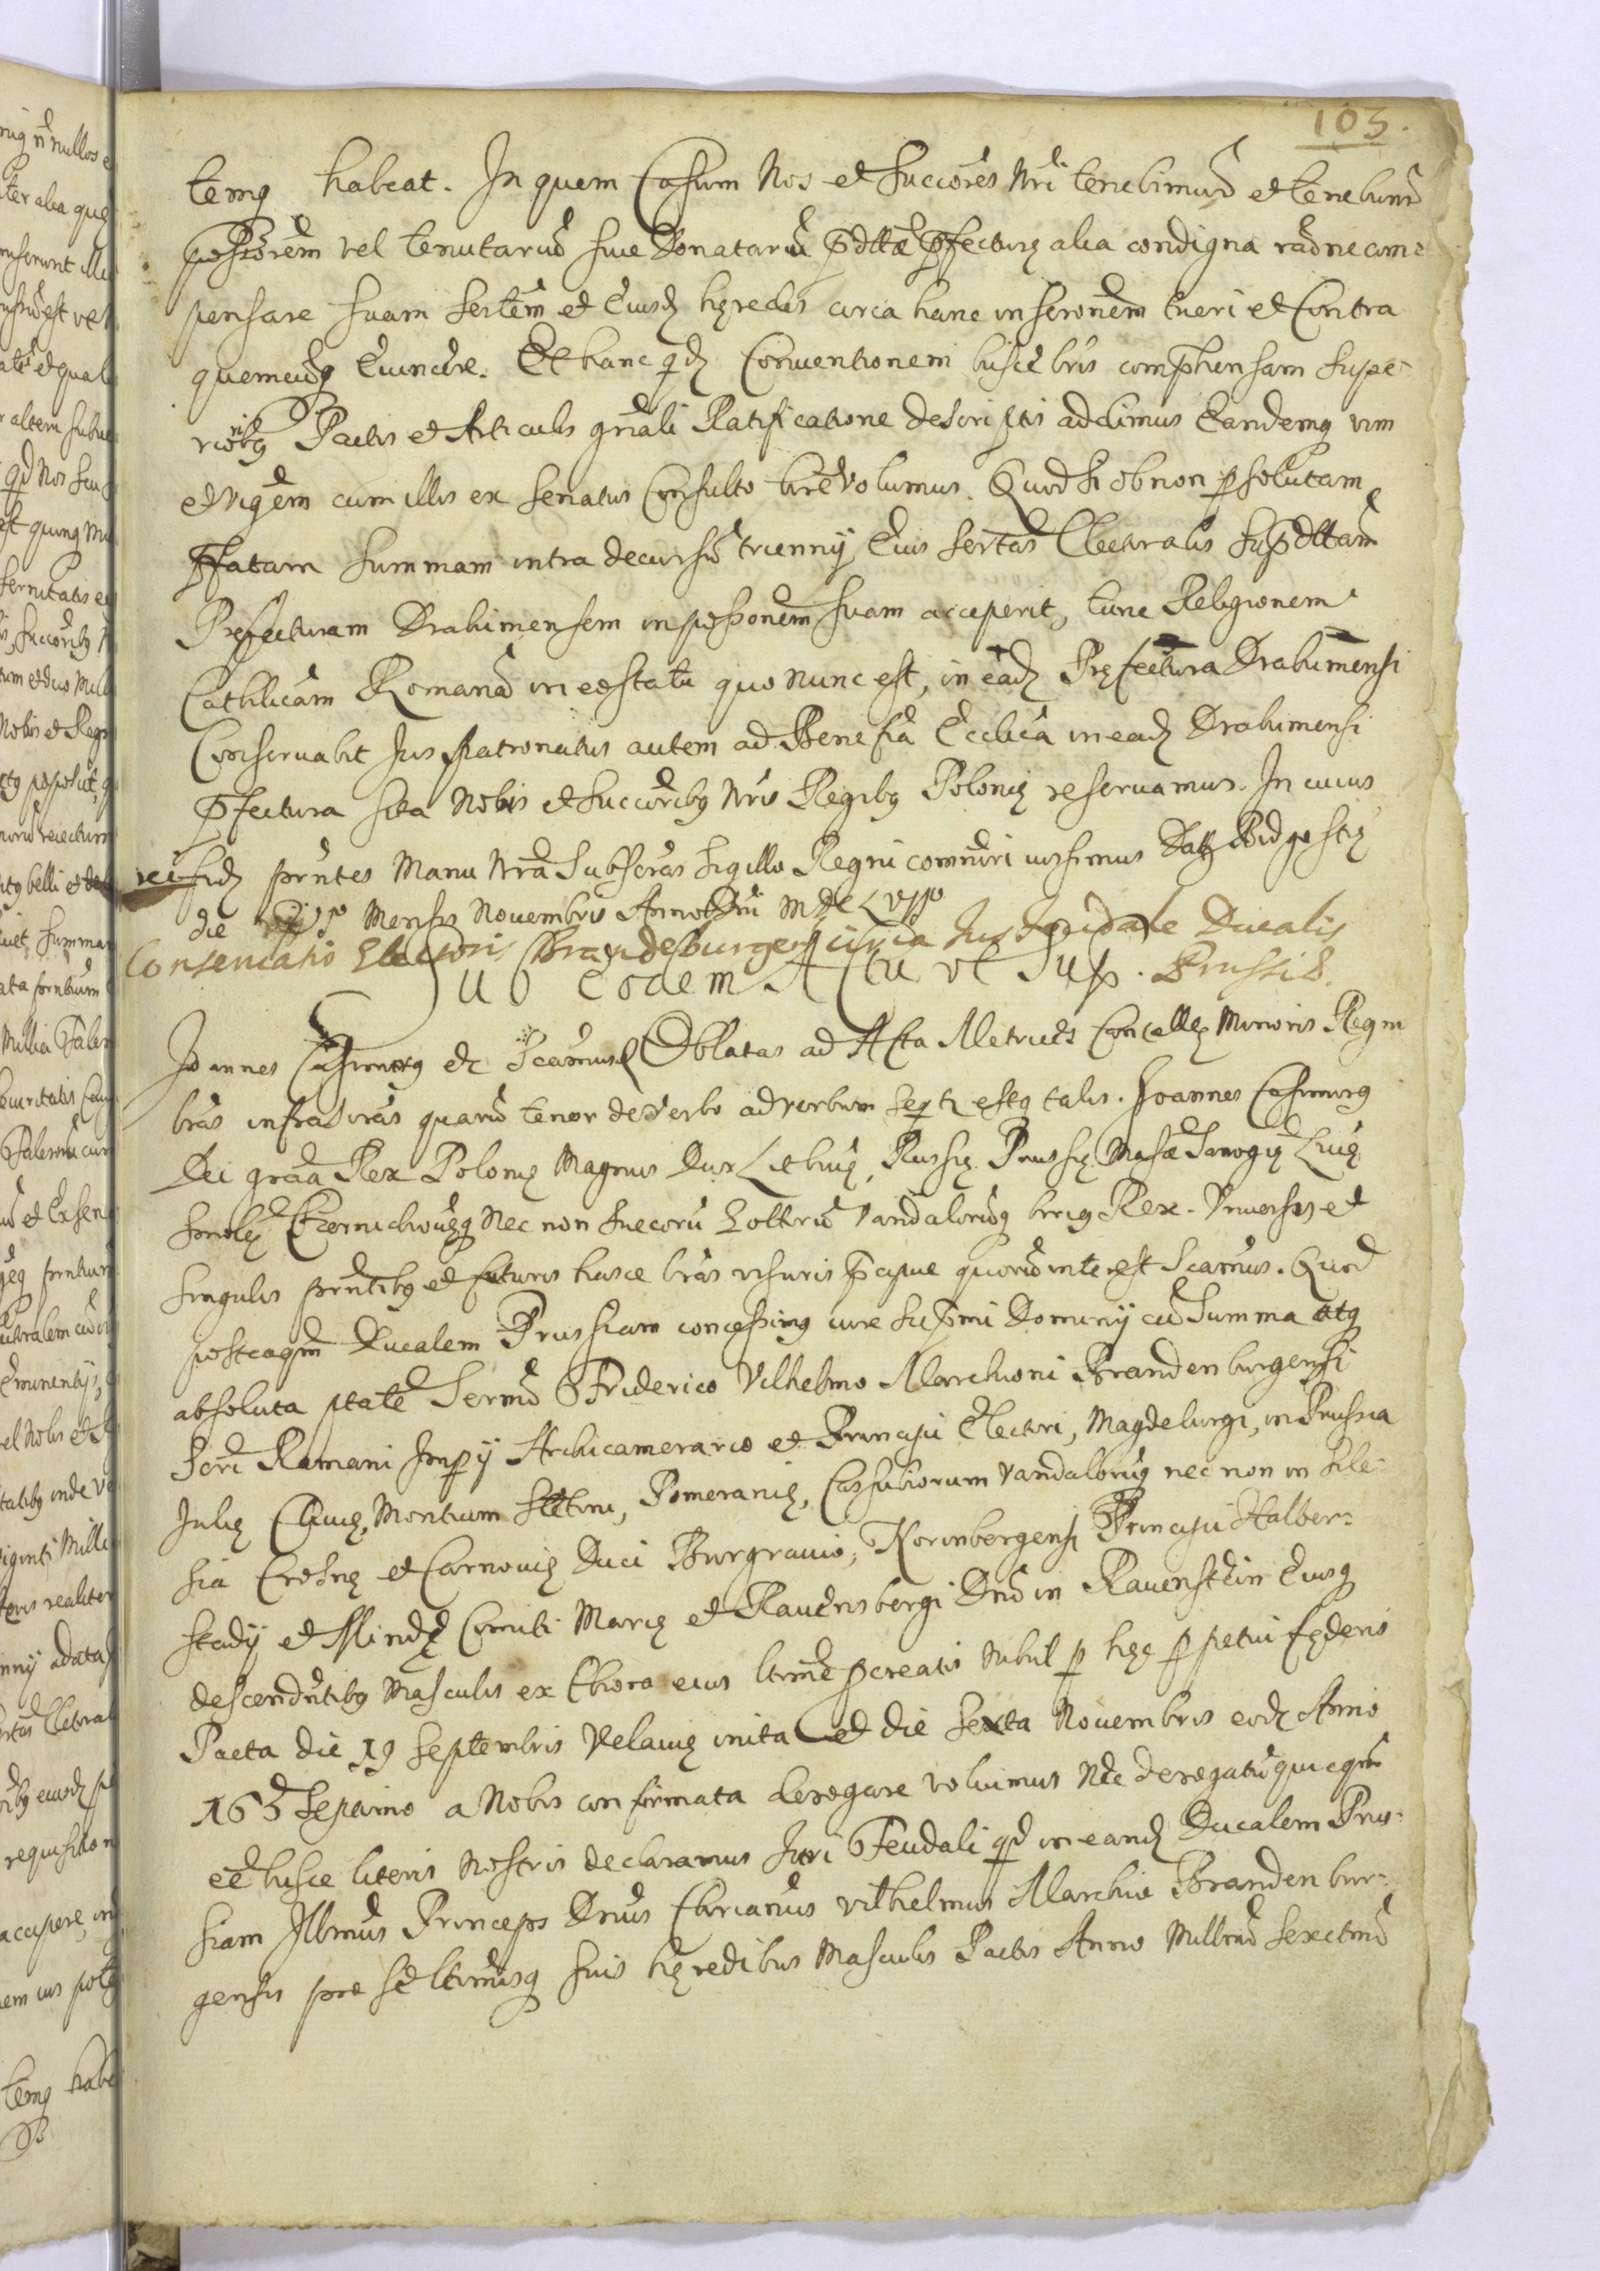 103.
temq habeat. In quem Casum Nos et Succores Nri tenebimur et tenebunt
possorem vel tenutarium siue Donatarium pdttae pfecturę alia condigna raone com=
pensare suam Sertem et Eiusd hęredes circa hanc inseronem tueri et Contra
quemcunq Euincere. Et hanc qd Conuentionem hisce lris comphensam supe-
rioribq Pactis et Articulis gnali Ratificatione descriptis addimus Eandemq vim
et vigem cum illis ex senatus Consulto hre volumus. Quod si ob non psolutam
pfatam Summam intra decursu triennij Eius sertas Electoralis supdttam
Pręfecturam Drahimensem in possonem suam acceperit, tunc Religionem
Cathlicam Romana in eo statu quo nunc est, in ead Pręfectura Drahimensi
Conseruabit Jus Patronatus autem ad Benefia Ecclica in ead Drahimensi
pfectura sita Nobis et Succoribq Nris Regibq Polonię reseruamus. In cuius
rei fid pntes Manu Nra Subscras Sigillo Regni comniri iussimus Datt Bidgostię
die Mensis Nouembris Anno Dni
Electori Brandeburgen circa Jus Ducalis
Sub eodem Actu vt Sup. Prussię.
Joannes Casimirq etc Scamus Oblatas ad Acta Metrices Cancellę Minoris Regni
lras infrascras quaru tenor de verbo ad verbum seqt estq talis. Joannes Casimirq
Dei graa Rex Polonię Magnus Dux Lithuę, Russię Prussię Masae Samogię Liuę
Smolę Czernichouięq Nec non Suecoru Gottoru Vandaloruq hrrig Rex. Vniuersis et
singulis pntibq et futuris hasce lras visuris pcipue quoru interest Scamus. Quod
posteaqm Ducalem Prussiam concessimq iure supmi Dominij cu Summa atq
absoluta ptate Sermo Friderico Vilhelmo Marchioni Brandenburgensi
Scri Romani Impij Archicamerario et Principi Electori, Magdeburgi, in Prussia
Julię Cliuię, Montium Stetini, Pomeranię, Cassubiorum Vandaloruq nec non in Sile-
sia Crosnę et Carnouię Duci Burgrauio, Norinbergensi Principi Halber=
stadij et Mindę Comiti Marcę et Rauensbergi Dno in Rauenstein Eiusq
descendentibq Masculis ex Thoro eius ltime pcreatis Nihil p hęc ppetui fęderis
Pacta die 19 Septembris Velauię inita et die Sexta Nouembris eod Anno
165 Septimo a Nobis confirmata derogare voluimus Nec derogatu quicqm
ee hisce literis Nostris declaramus Juri Feudali qd in eand Ducalem Prus-
siam Illmus Princeps Dnus Vilhelmus Marchio Brandenbur-
gensis pro se ltimisq suis hęredibus Masculis Pactis Anno Millmo Sexctmo